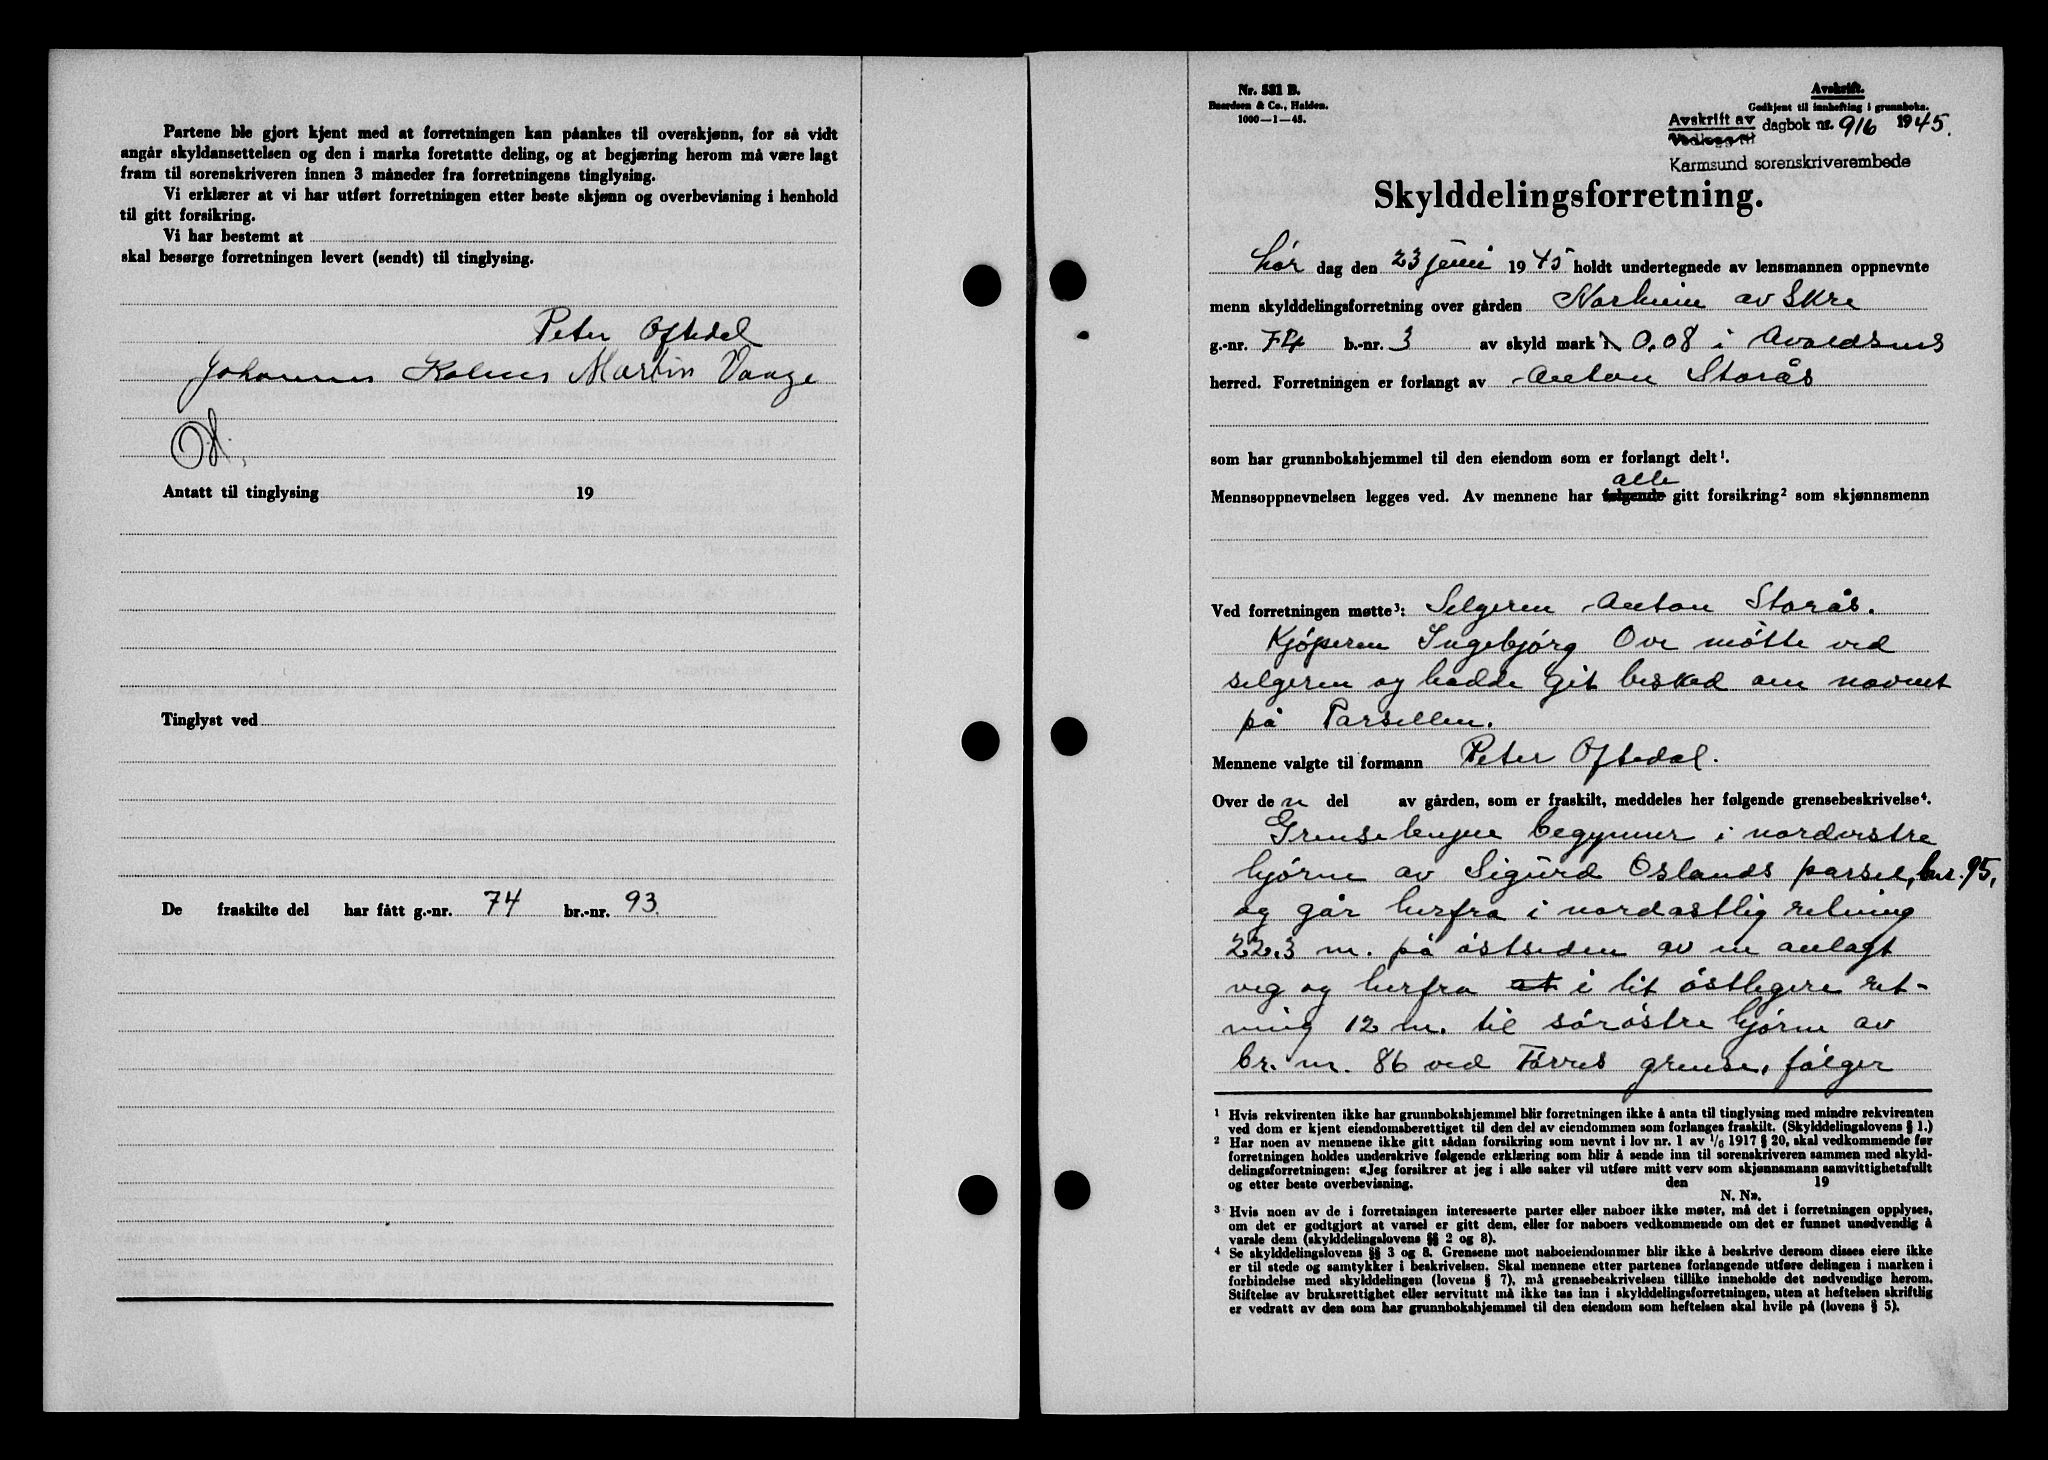 Partene ble gjort kjent med at forretningen kan påankes til overskjønn, for så vidt
angår skyldansettelsen og den i marka foretatte deling, og at begjæring herom må være lagt
fram til sorenskriveren innen 3 måneder fra forretningens tinglysing.
Vi erklærer at vi har utført forretningen etter beste skjønn og overbevisning i henhold
til gitt forsikring.
Vi har bestemt at
skal besørge forretningen levert (sendt) til tinglysing.
Peter Oftedal
Johannes Kolnes Martin Vaage
Antatt til tinglysing 19
Tinglyst ved
De fraskilte del har fått g.-nr. 74 br.-nr. 93.
Nr. 531 B.
Baardsen & Co., Halden.
1000—1—45.
Avskrift.
Godkjent til innhefting i grunnboka.
Avskrift av
Vedlegg til
dagbok nr. 916 1945.
Karmsund sorenskriverembede
Skylddelingsforretning.
Lør dag den 23 juni 1945 holdt undertegnede av lensmannen oppnevnte
menn skylddelingsforretning over gården Norheim av Skre
g.-nr. 74 b.-nr. 3 av skyld mark 0,08 i Avaldsnes
herred. Forretningen er forlangt av Anton Storås
som har grunnbokshjemmel til den eiendom som er forlangt delt¹.
alle
Mennsoppnevnelsen legges ved. Av mennene har følgende gitt forsikring² som skjønnsmenn
Ved forretningen møtte³: Selgeren Anton Storås.
Kjøperen Ingebjørg Ove møtte ved
selgeren og hadde git besked om navnet
på Parsellen.
Mennene valgte til formann Peter Oftedal.
Over den del av gården, som er fraskilt, meddeles her følgende grensebeskrivelse⁴.
Grenselinjen begynner i nordvestre
hjørne av Sigurd Oslands parsel, bnr. 95,
og går herfra i nordøstlig retning
22.3 m. på østsiden av en anlagt
veg og herfra at i lit østligere ret-
ning 12 m. til sørøstre hjørne av
br. nr. 86 ved Førres grense, følger
¹ Hvis rekvirenten ikke har grunnbokshjemmel blir forretningen ikke å anta til tinglysing med mindre rekvirenten
ved dom er kjent eiendomsberettiget til den del av eiendommen som forlanges fraskilt. (Skylddelingslovens § 1.)
² Har noen av mennene ikke gitt sådan forsikring som nevnt i lov nr. 1 av 1/6 1917 § 20, skal vedkommende før
forretningen holdes underskrive følgende erklæring som blir å sende inn til sorenskriveren sammen med skyld-
delingsforretningen: «Jeg forsikrer at jeg i alle saker vil utføre mitt verv som skjønnsmann samvittighetsfullt
og etter beste overbevisning. den 19
N. N».
³ Hvis noen av de i forretningen interesserte parter eller naboer ikke møter, må det i forretningen opplyses,
om det er godtgjort at varsel er gitt dem, eller for naboers vedkommende om det er funnet unødvendig å
varsle dem (skylddelingslovens §§ 2 og 8).
⁴ Se skylddelingslovens §§ 3 og 8. Grensene mot naboeiendommer blir ikke å beskrive dersom disses eiere ikke
er til stede og samtykker i beskrivelsen. Skal mennene etter partenes forlangende utføre delingen i marken i
forbindelse med skylddelingen (lovens § 7), må grensebeskrivelsen tillike inneholde det nødvendige herom.
Stiftelse av bruksrettighet eller servitutt må ikke tas inn i skylddelingsforretningen, uten at heftelsen skriftlig
er vedratt av den som har grunnbokshjemmel til den eiendom som heftelsen skal hvile på (lovens § 5).